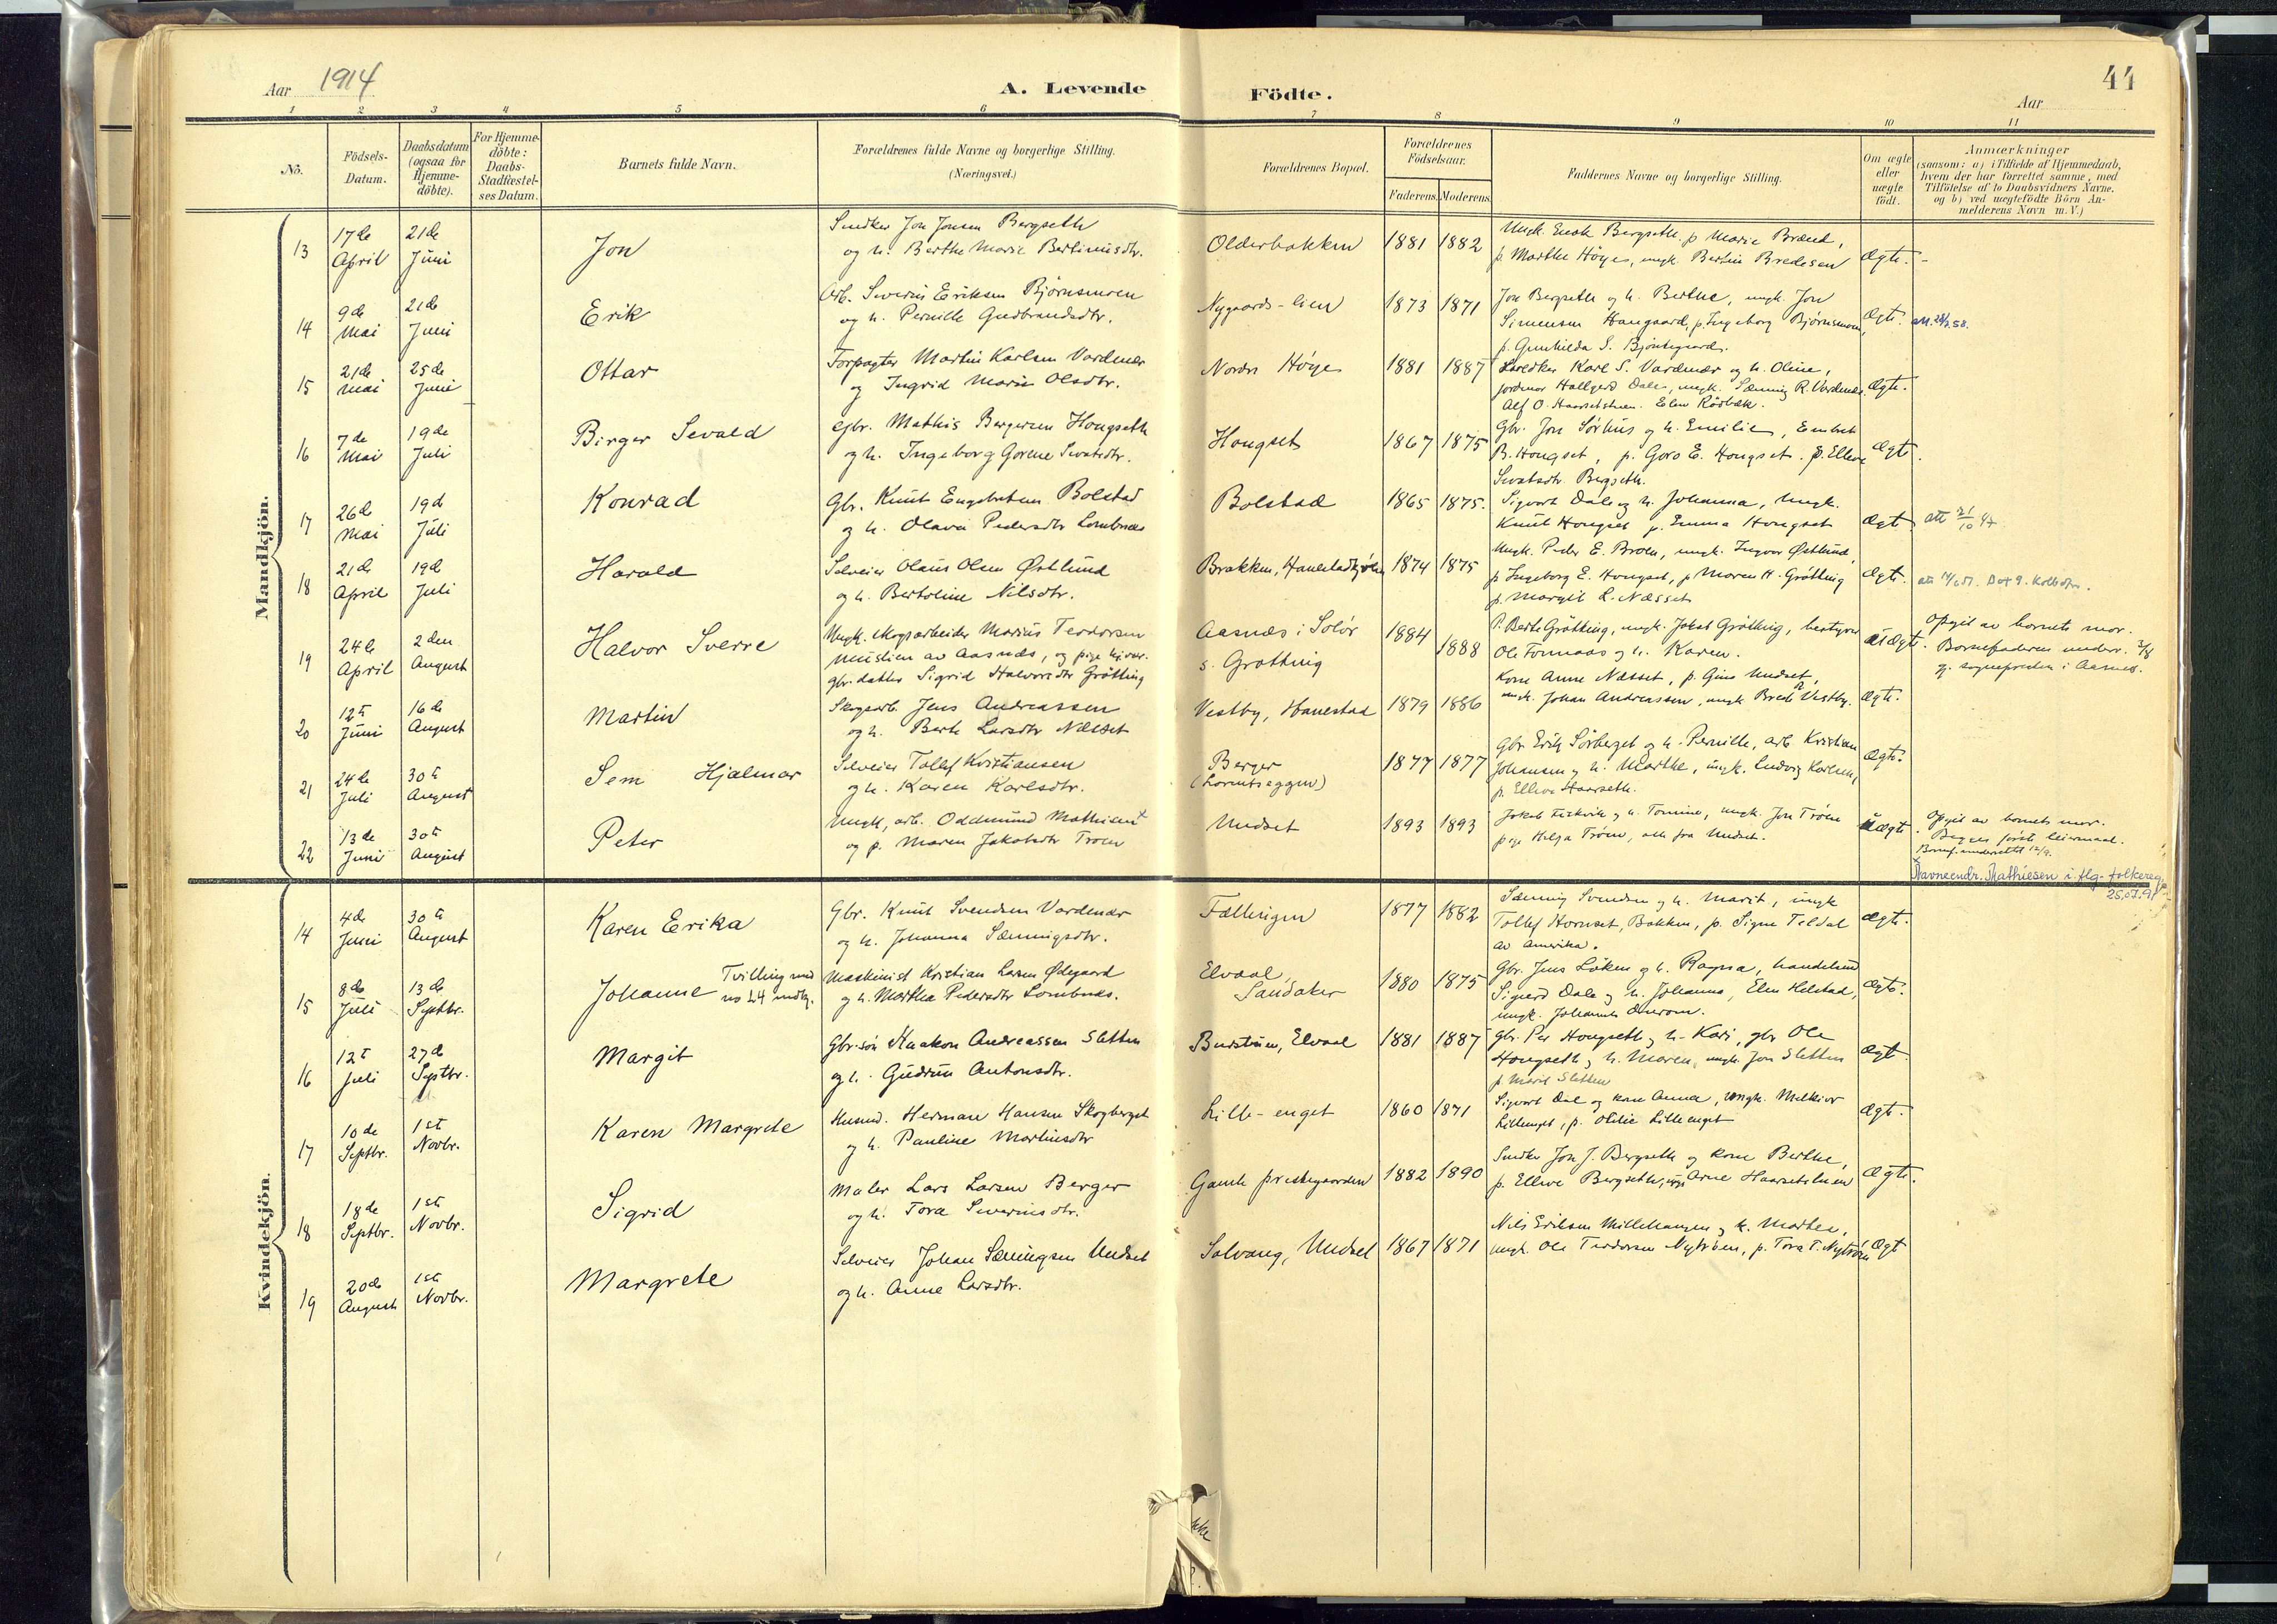 Aar 1914
A. Levende
Födte.
Aar
44
1 2 3 4 5 6 7 8 9 10 11
No.
Födsels-
Datum.
Daabsdatum
(ogsaa for
Hjemme-
döbte).
For Hjemme-
döbte:
Daabs-
Stadfæstel-
ses Datum.
Barnets fulde Navn.
Forældrenes fulde Navne og borgerlige Stilling.
(Næringsvei.)
Forældrenes Bopæl.
Forældrenes
Födselsaar.
Faderens. Moderens.
Faddernes Navne og borgerlige Stilling.
Om ægte
eller
uægte
födt.
Anmærkninger
(saasom: a) i Tilfælde af Hjemmedaab,
hvem der har forrettet samme, med
Tilföielse af to Daabsvidners Navne.
og b) ved uægtefödte Börn An-
melderens Navn m.V.)
Mandkjön.
13
17de
April
21de
Juni
Jon
Smedker Jon Jonsen Bergseth
og h. Berthe Marie Bertinusdtr.
Olderbakken
1881
1882
Ungk. Enok Bergseth, p Marie Brænd,
p. Marthe Høye, ungk. Bertin Bredesen
Ægte.
14
9de
Mai
21de
Juni
Erik
Arb. Severin Eriksen Bjørnsmoen
og h. Pernille Gudbrandsdtr.
Nygaards-lien
1873
1871
Jon Bergseth og h. Berthe, ungk. Jon
Simensen Haugaard, p. Ingeborg Bjørnsmoen,
p. Gunhilda S. Bjøntegaard.
Ægte.
15
21de
Mai
25de
Juni
Ottar
Forpagter Martin Karlsen Vardenær
og Ingrid Marie Olsdtr.
Nordre Høye
1881
1887
Karl S. Vardenær og h. Oline,
jordmor Hallgerd Dale, ungk. Sæming R. Vardenær
Alf O. Haarsetstuen. Elen Rødbæk.
Ægte.
16
7de
Mai
19de
Juli
Birger Sevald
Gbr. Mathis Bergersen Hongseth
og h. Ingeborg Gorene Sivatsdtr.
Hongset
1867
1875
Gbr. Jon Sørhus og h. Emilie, Embret
B. Hongset, p. Goro E. Hongset. p. Ellevine
Sivatsdtr. Bergseth.
Ægte.
17
26de
Mai
19de
Juli
Konrad
Gbr. Knut Engebretsen Bolstad
og h. Olava Pedersdtr Lombnæs
Bolstad
1865
1875.
Sigvart Dale og h. Johanna, Ungk.
Knut Hongset p. Emma Hongset
Ægte
att 21/10 47
18
21de
April
19de
Juli
Harald
Selveier Olaus Olsen Østlund
og h. Bertoline Nilsdtr.
Brakken, Hanestadkjølen
1874
1875
Ungk. Peder E. Broen, ungk. Ingvar Østlund,
p. Ingeborg E. Hongset, p Maren H. Grøtting
p. Margit L. Næsset
Ægte.
19
24de
April
2den
August
Halvor Sverre
Ungk. skogsarbeider Marius Teodorsen
av Aasnæs, og pige
gbr.datter Sigrid Halvorsdtr Grøtting
Aasnæs i Solør
s. Grøtting
1884
1888
P. Berte Grøtting, ungk. Jakob Grøtting, bestyrer
Ole Formaas og h. Karen.
Uægte.
Opgit av barnets mor.
Barnefaderen underr. 3/8
gj. sognepræsten i Aasnæs.
20
12te
Juni
16de
August
Martin
Skogsarb. Jens Andreassen
og h. Berte Larsdtr Næsset
Vestby, Hanestad
1879
1886
Kone Anne Næsset, p. Gina Undset,
ungk. Johan Andreassen, ungk Brede Vestby.
Ægte.
21
24de
Juli
30te
August
Sem Hjalmar
Selveier Tollef Kristiansen
og h. Karen Karlsdtr.
Berger
(Lomnæseggen)
1877
1877
Gbr. Erik Sørberget og h. Pernille, arb. Kristian
Johansen og h. Marthe, ungk. Ludvig Karlsen,
p. Elleve Haarseth.
Ægte.
22
13de
Juni
30te
August
Peter
Ungk, arb. Oddmund Mathisen
og p. Maren Jakobsdtr Trøen
Undset
1893
1893
Jakob og h. Tomine, ungk. Jon Trøen
pige Helga Trøen, alle fra Undset.
Uægte
Opgit av barnets mor.
Begges første leiermaal.
Barnef. underrettet 12/9.
Navneendr. Mathiesen i flg. folkereg.
25.07.91
Kvindekjön.
14
4de
Juni
30te
August
Karen Erika
Gbr. Knut Svendsen Vardenær
og h. Johanna Sæmingsdtr.
Fællingen
1877
1882
Sæming Svendsen og h. Marit, ungk
Tollef Hornset, Bakken, p. Signe Teldal
av Amerika.
Ægte.
15
8de
Juli
13de
Septbr.
Johanne
Tvilling med
no 24 mdkj.
Maskinist Kristian Larsen Ødegaard
og h. Martha Pedersdtr Lombnæs.
Elvaal,
Sandaker
1880
1875
Gbr. Jens Løken og h. Ragna, handelsmd
Sigurd Dale og h. Johanna, Elen Helstad,
ungk. Johannes
Ægte.
16
12te
Juli
27de
Septbr.
Margit
Gbr.søn Haakon Andreassen Sletten
og h. Gudrun Antonsdtr.
Burstuen, Elvaal
1881
1887
Gbr. Per Hongseth og h. Kari, gbr Ole
Hongseth og h. Maren, ungk. Jon Sletten
p. Marit Sletten
Ægte.
17
10de
Septbr.
1ste
Novbr.
Karen Margrete
Husmd. Herman Hansen Skogberget
og h. Pauline Martinsdtr
Lille-enget
1860
1871
Sigvart Dal og kone Anna, ungk. Melkior
Lilleenget, p. Otilie Lilleenget
Ægte.
18
18de
Septbr.
1ste
Novbr.
Sigrid
Maler Lars Larsen Berger
og h. Tora Severinsdtr.
Gamle prestegaarden
1882
1890
Smedker Jon J. Bergseth og kone Berthe,
p. Elleve Bergseth, ungk Arne Haarsetstuen
Ægte.
19
20de
August
1ste
Novbr.
Margrete
Selveier Johan Sæmingsen Undset
og h. Anne Larsdtr.
Solvang, Undset
1867
1871
Nils Eriksen Millehaugen og h. Marthe,
ungk. Ole Teodorsen Nytrøen, p. Tora T. Nytrøen
Ægte